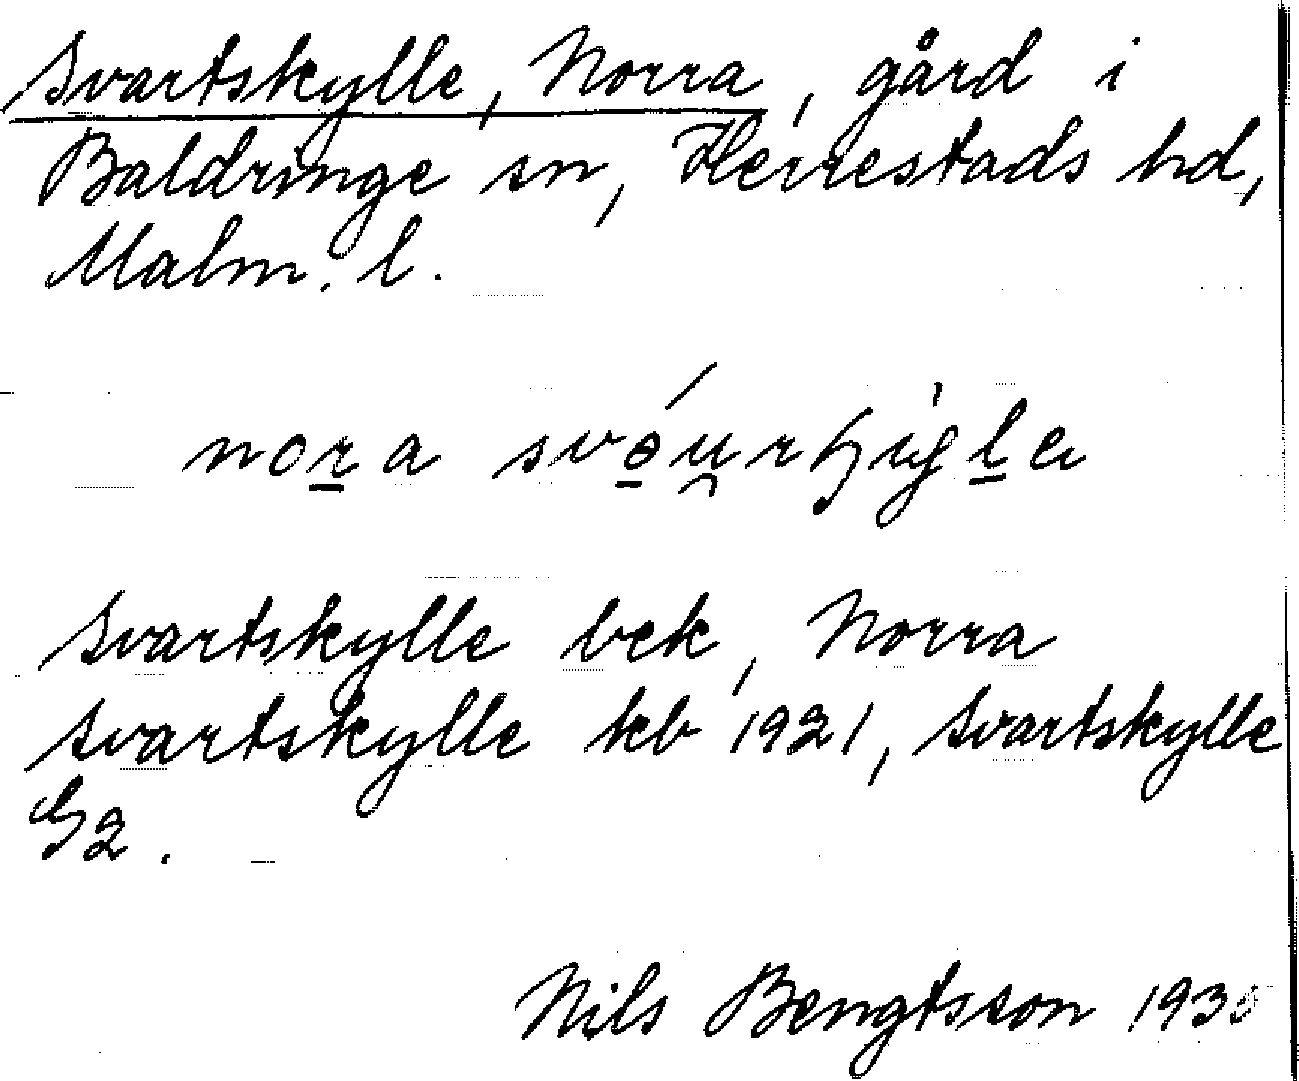 Svartskylle, Norra, gård i
Baldringe sn, Herrestads hd,
Malm. l.
nora
Svartskylle bek, Norra
Svartskylle kb 1921, Svartskylle
G2.
Nils Bengtsson